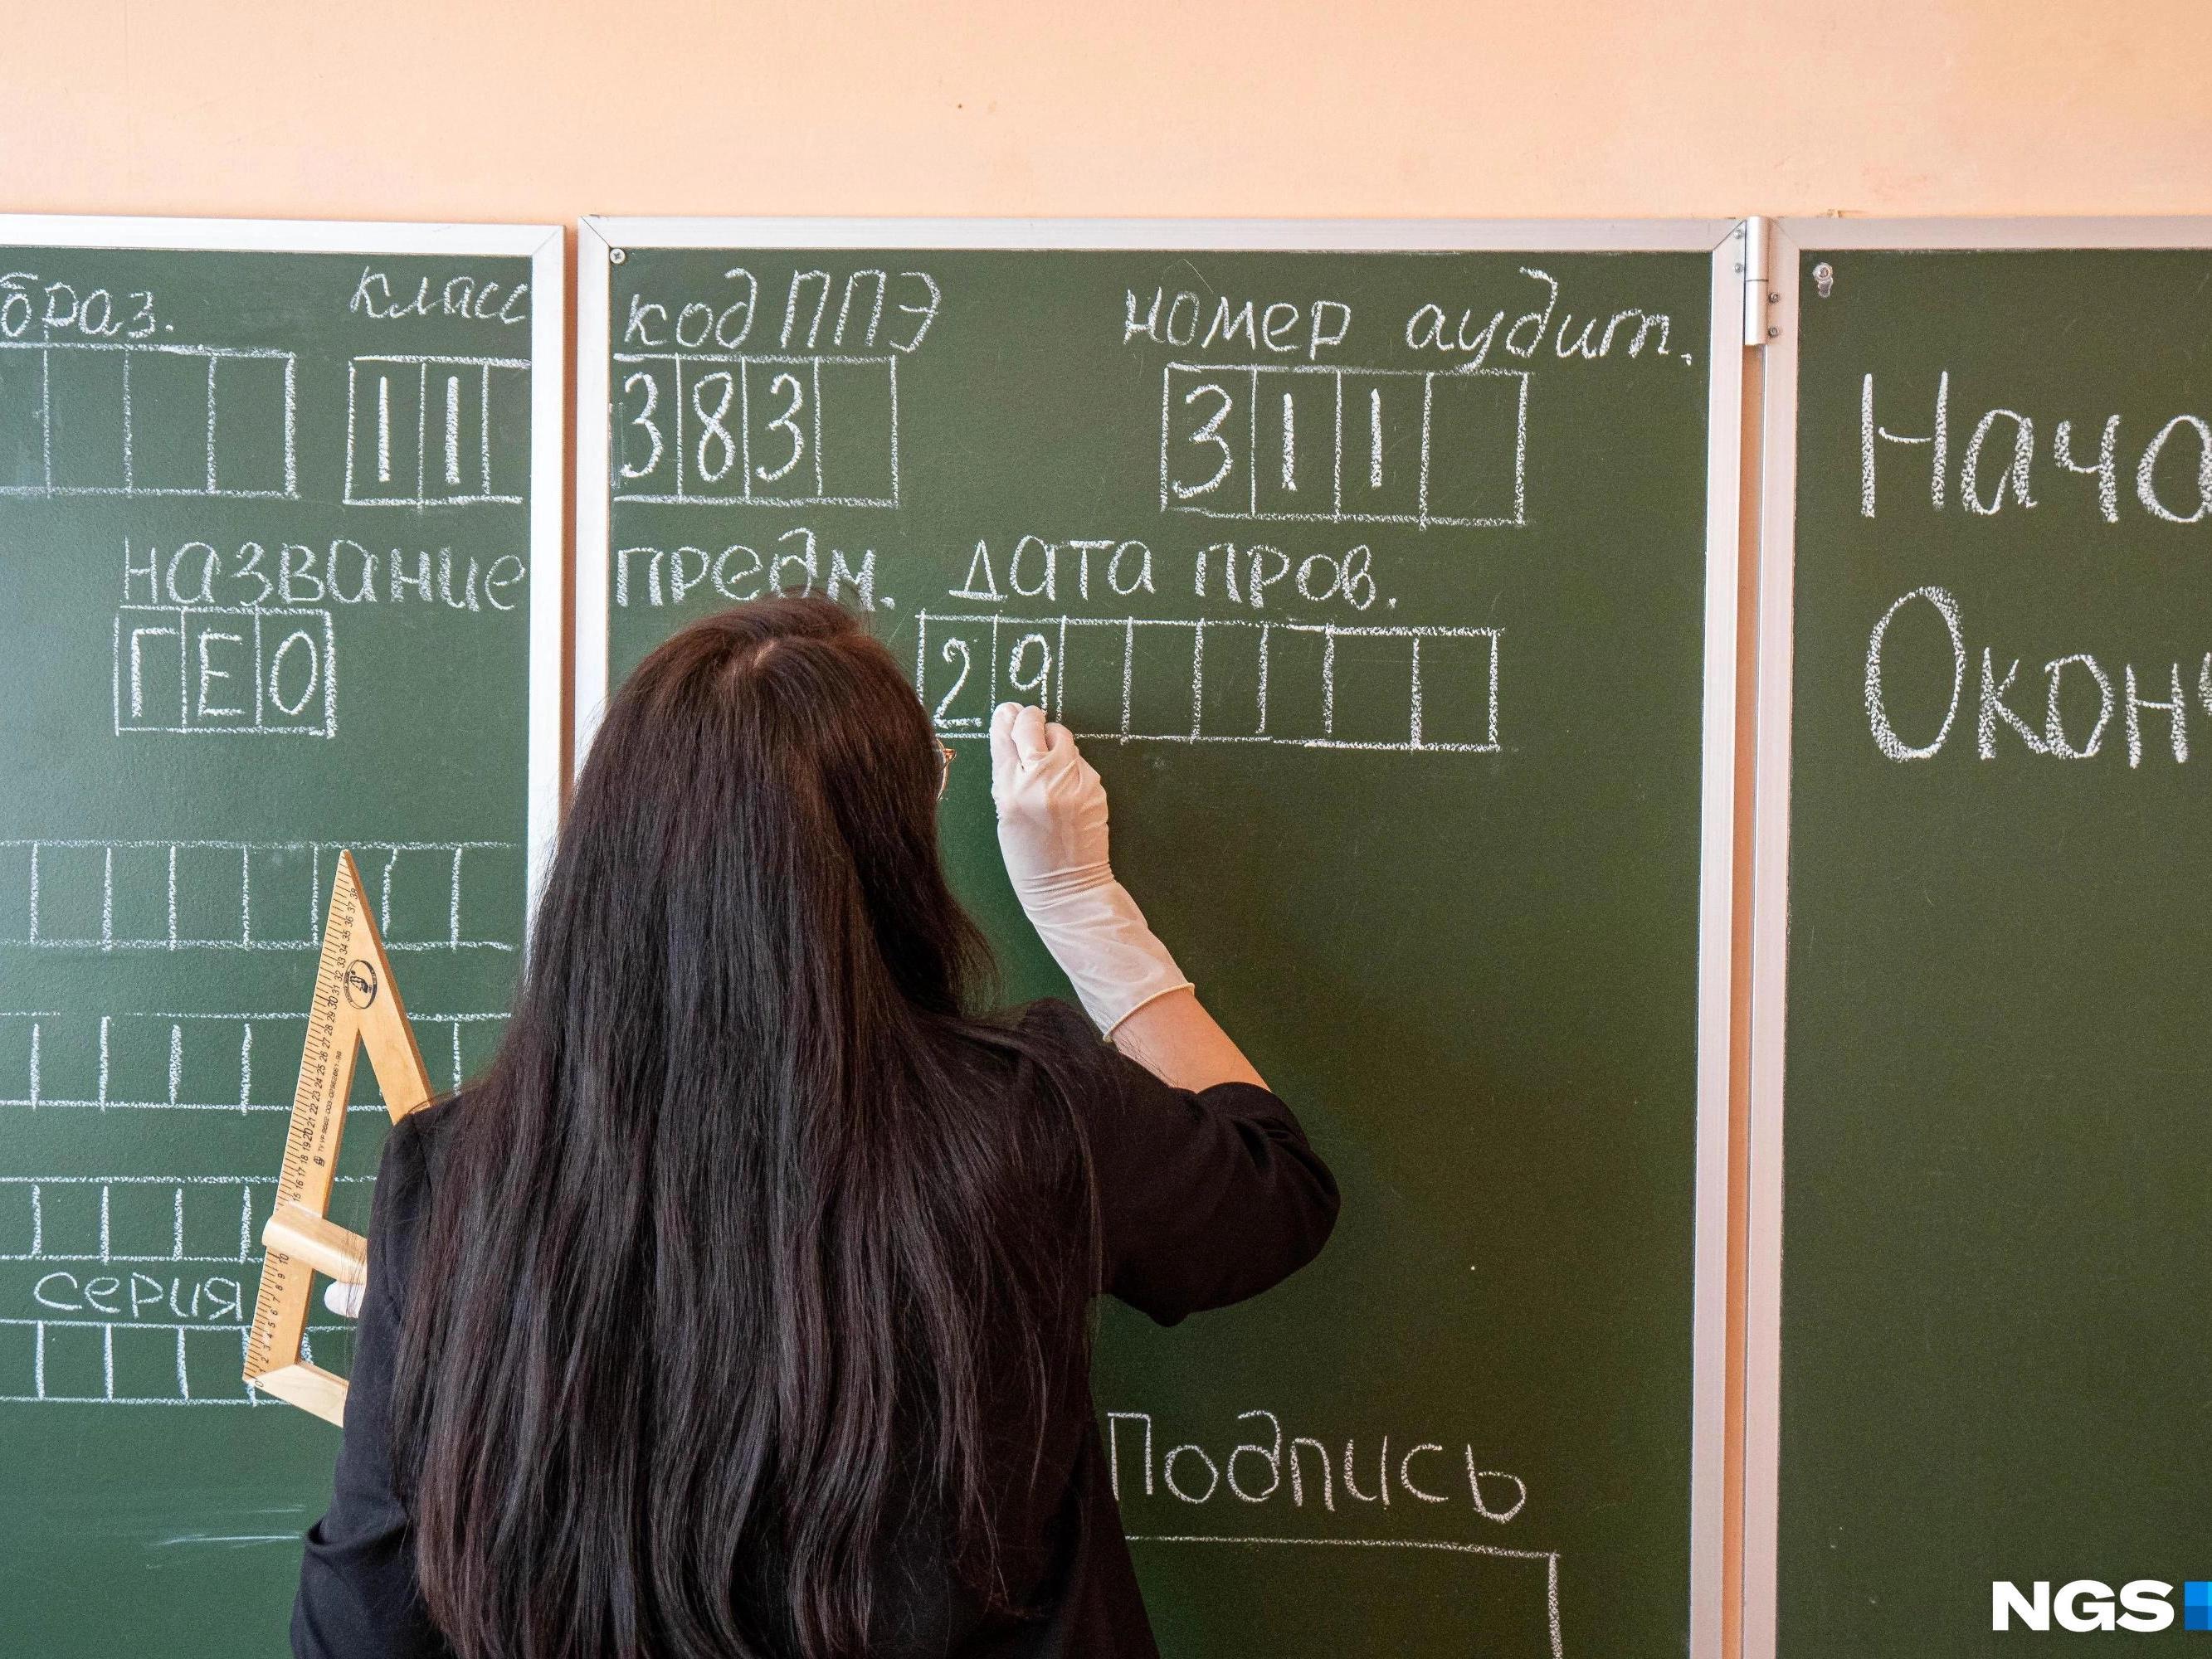 браз. класс код ППЭ номер аудит.
11 383 311
Нача
название предм. дата пров.
ГЕО 29
Окон
серия
Подпись
NGS